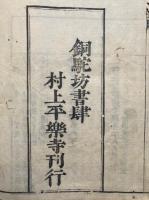 銅駝坊書肆
村上平樂寺刊行